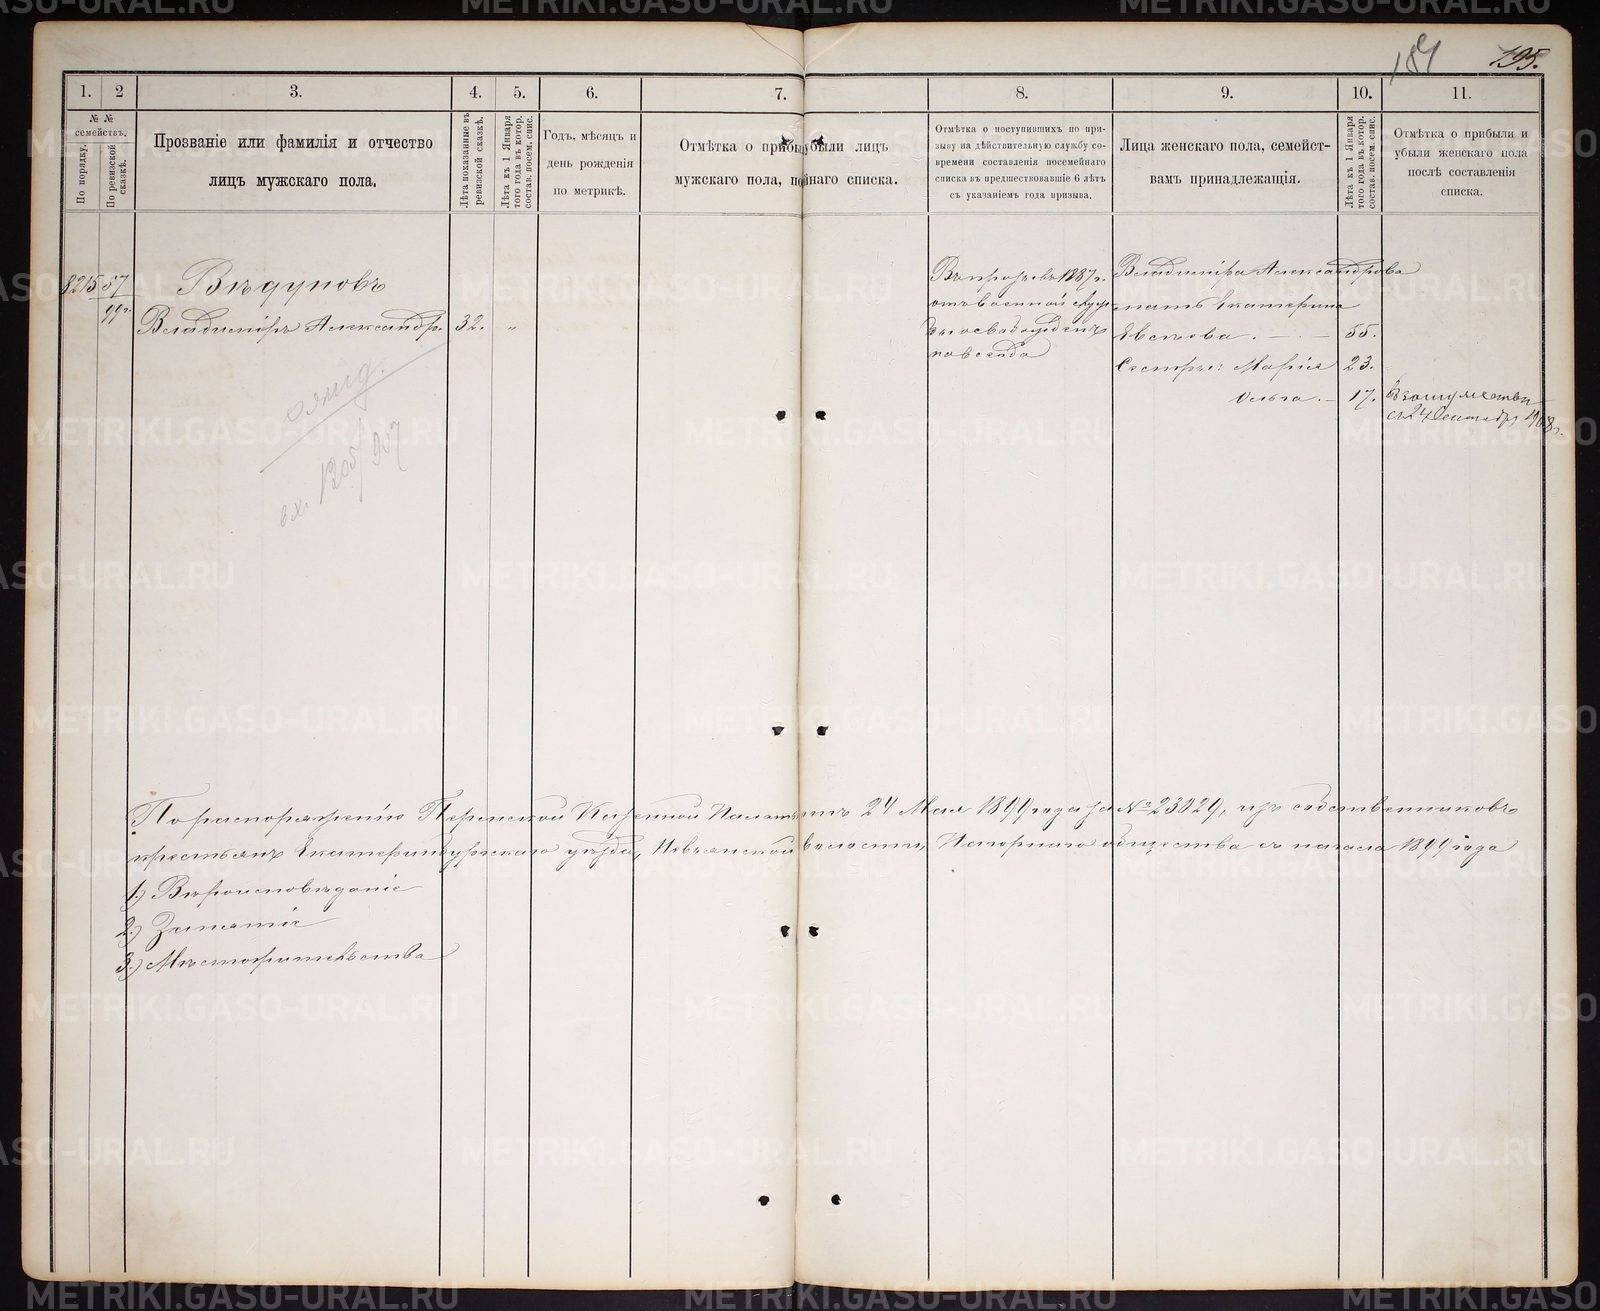 195.
1.
2
3.
4.
5.
6.
7.
8.
9.
10.
11.
№ №
семействъ.
По порядку.
По ревизской
сказкѣ.
Прозваніе или фамилія и отчество
лицъ мужскаго пола.
Лѣта показанные въ
ревизской сказкѣ.
Лѣта къ 1 Января
того года въ котор.
состав. посем. спис.
Годъ, мѣсяцъ и
день рожденія
по метрикѣ.
Отмѣтка о прибы убыли лицъ
мужскаго пола, по йнаго списка.
Отмѣтка о поступившихъ по при-
зыву на дѣйствительную службу со-
времени составленія посемейнаго
списка въ предшествовавшіе 6 лѣтъ
съ указаніемъ года призыва.
Лица женскаго пола, семейст-
вамъ принадлежащія.
Лѣта къ 1 Января
того года въ котор.
состав. посем. спис.
Отмѣтка о прибыли и
убыли женскаго пола
послѣ составленія
списка.
8215
57
99г.
Вѣдуновъ
Владиміръ Александр. 32. „
вх. 1205/907
Въ призывъ 1887 г.
отъ военной служ
бы освобожденъ
навсегда
Владиміра Александрова
мать Екатерина
Евсѣева. — . — 55.
Сестры: Марія 23.
Ольга. — 17.
Въ замужествѣ
съ 24 Сентября 1908 г.
По распоряженію Пермской Казенной Палаты отъ 24 Мая 1899 года за № 23029, изъ собственниковъ
крестьянъ Екатеринбургскаго уѣзда, Невьянской волости, Нагорнаго общества съ начала 1899 года
1.) Вѣроисповѣданіе
2.) Занятіе
3.) Мѣстожительства
METRIKI.GASO-URAL.RU